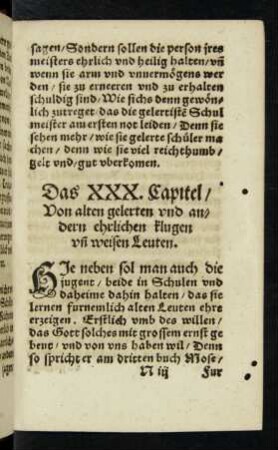 sagen/Sondern sollen die person jres
meisters ehrlich vnd heilig halten/vñ
wenn sie arm vnd vnuermögens wer
den/sie zu erneeren vnd zu erhalten
schuldig sind/Wie sichs denn gewön-
lich zutreget/das die gelertistẽ Schul
meister am ersten not leiden/Denn sie
sehen mehr/wie sie gelerte schüler ma
chen/denn wie sie viel reichthumb/
gelt vnd/gut vberkomen.
Das XXX. Capitel/
Von alten gelerten vnd an-
dern ehrlichen klugen
vñ weisen Leuten.
HIe neben sol man auch die
jugent/beide in Schulen vnd
daheime dahin halten/das sie
lernen furnemlich alten Leuten ehre
erzeigen. Erstlich vmb des willen/
das Gott solches mit grossem ernst ge
beut/vnd von vns haben wil/Denn
so spricht er am dritten buch Mose/
N iij Fur